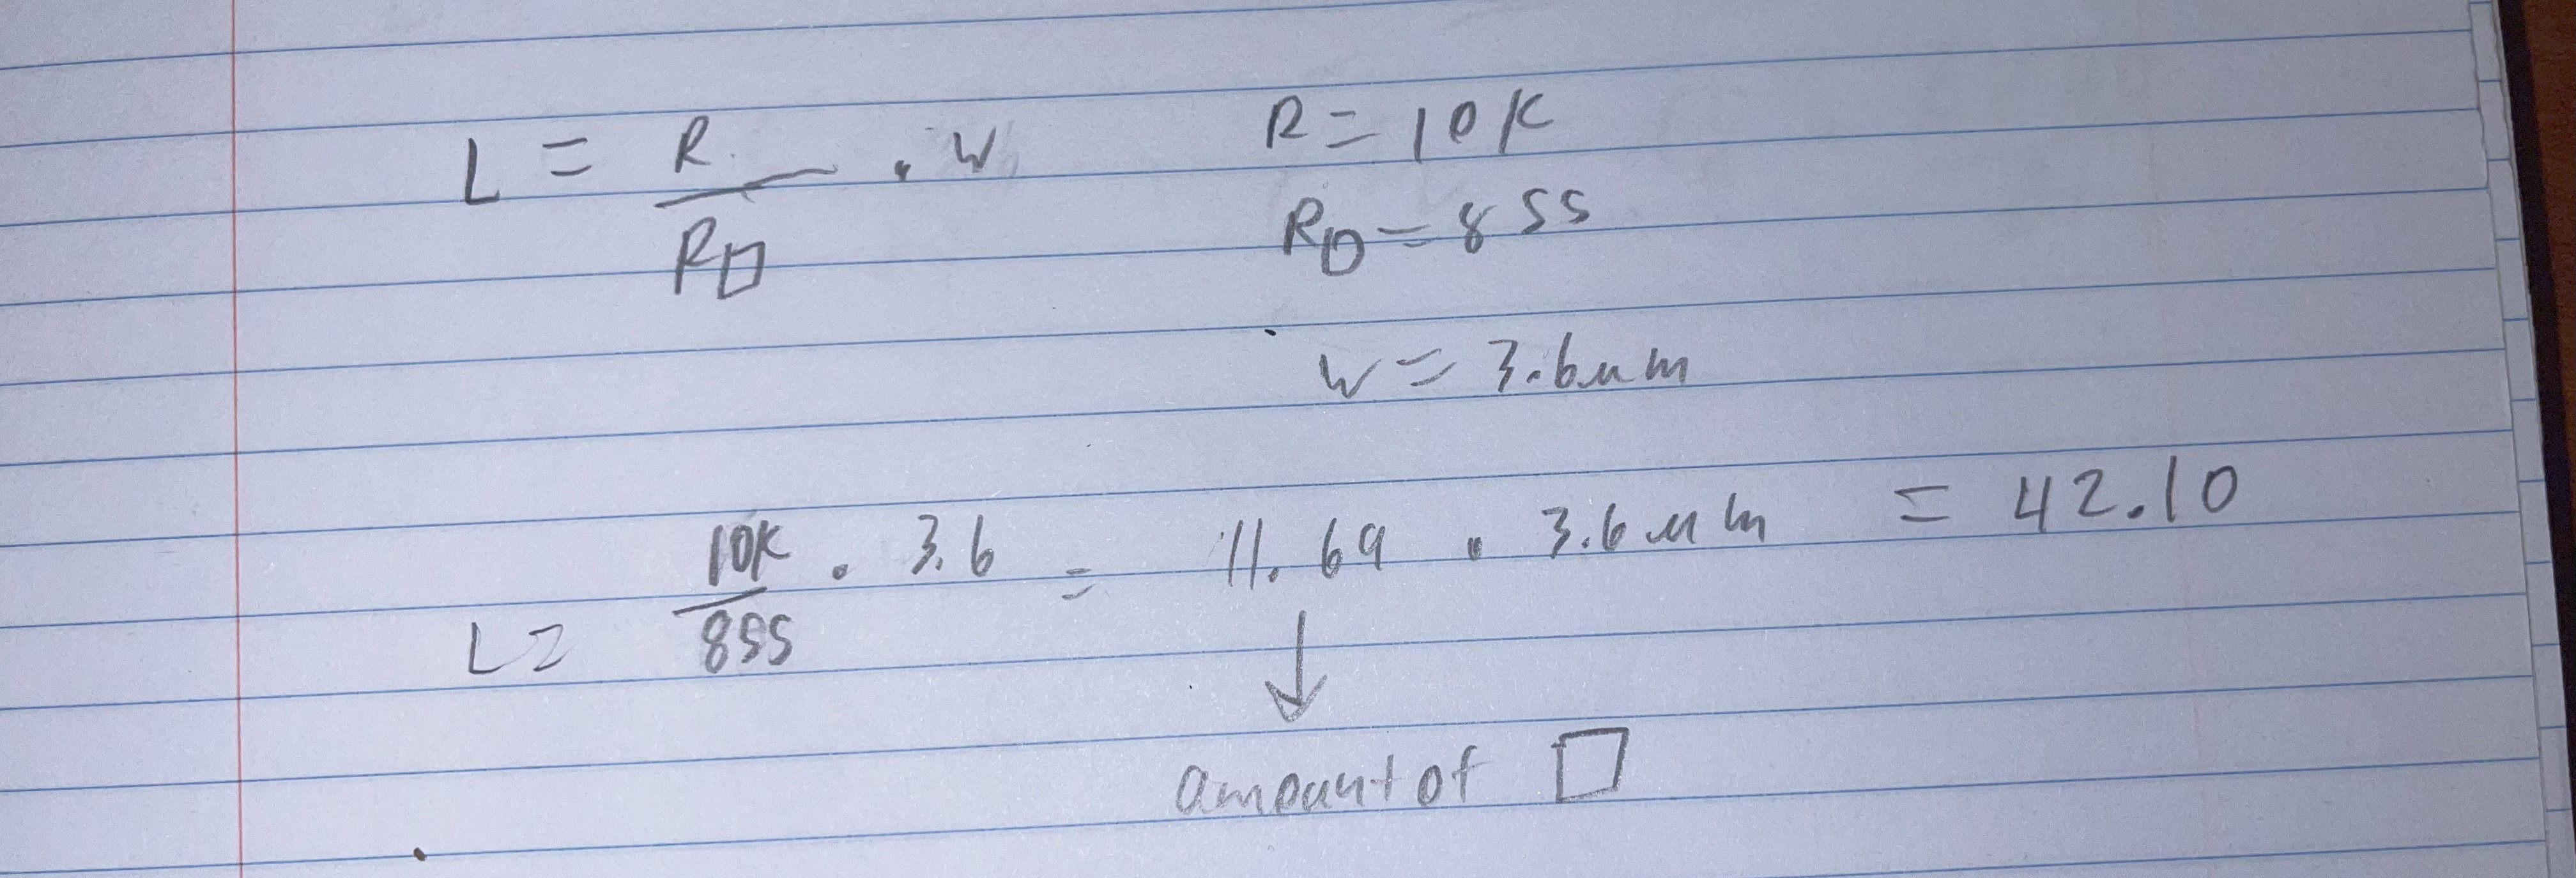 L = R / R□ . W
R = 10K
R□ = 855
W = 3.6um
L = 10K / 855 . 3.6 = 11.69 . 3.6um = 42.10
↓
amount of □